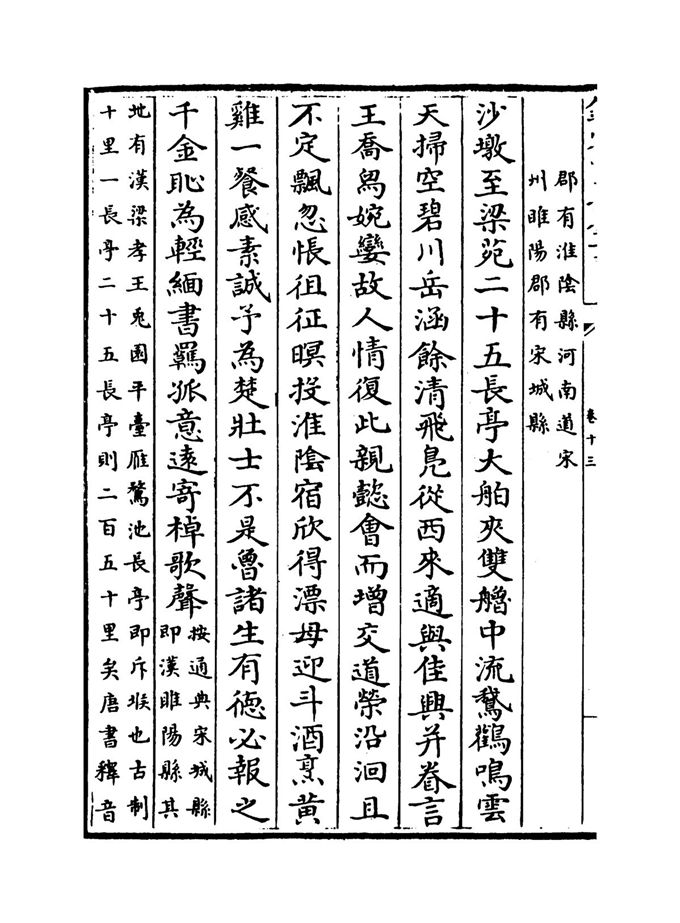 卷十三
郡有淮陰縣河南道宋
州睢陽郡有宋城縣
沙墩至梁苑二十五長亭大舶夾雙艣中流鵞鸛鳴雲
天掃空碧川岳涵餘清飛鳧從西來適與佳興并眷言
王喬舄婉孌故人情復此親懿會而増交道榮沿洄且
不定飄忽悵徂征暝投淮陰宿欣得漂母迎斗酒烹黄
雞一餐感素誠予為楚壯士不是魯諸生有德必報之
千金恥為輕緬書羈孤意遠寄棹歌聲
按通典宋城縣
即漢睢陽縣其
地有漢梁孝王兎園平臺雁鶩池長亭即斥堠也古制
十里一長亭二十五長亭則二百五十里矣唐書釋音